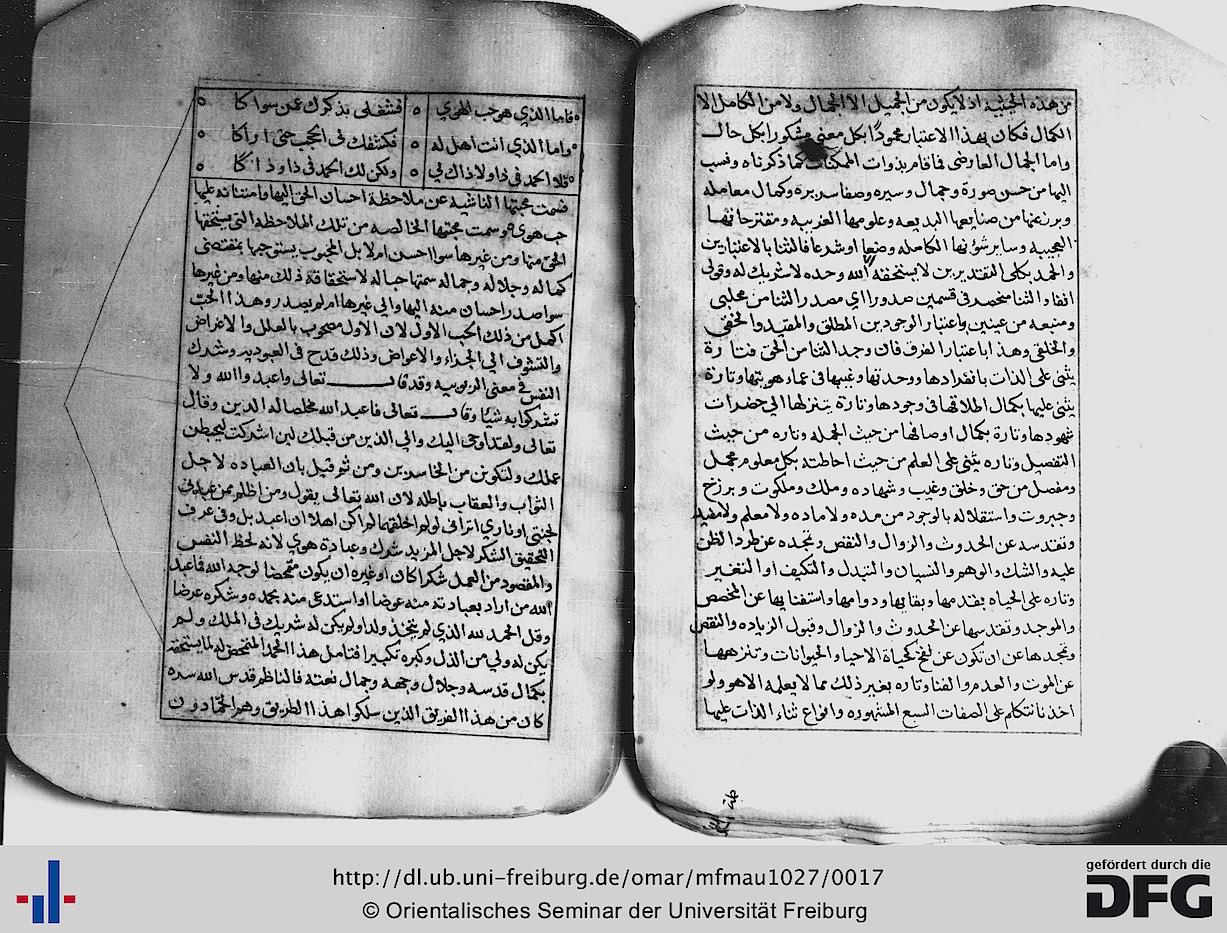 من هذه الحيثية اذ لا يكون من الجميل الا الجمال ولا من الكامل الا
الكمال فكان بهذا الاعتبار محمودًا بكل معنى مشكورا بكل حال
واما الجمال العارضى فما قام بذوات الممكنات كما ذكرناه ونسب
اليها من حسن صورة وجمال وسيره وصفا سريرة وكمال معامله
وبرز عنها من صنايعها البديعه وعلومها الغريبه ومقترحاتها
العجيبه وساير شؤنها الكامله وضعا او شرعا فالثنا بالاعتبارين
والحمد بكلى المقتديرين لا يستحقه الا الله وحده لا شريك له وقولى
انفا والثنا منحصر فى قسمين صدورا اى مصدر الثنا من مجلى
ومنبعه من عينين باعتبار الوجودين المطلق والمقيد والحقى
والخلقى وهذا باعتبار الفرق فان وجد الثنا من الحق فتارة
يثنى على الذات بانفرادها ووحدتها وغيبها فى عماء هويتها وتارة
يثنى عليها بكمال اطلاقها فى وجودها وتارة يتنزلها الى حضرات
شهودها وتارة بكمال اوصافها من حيث الجمله وتاره من حيث
التفصيل وتاره يثنى على العلم من حيث احاطته بكل معلوم مجمل
ومفصل من حق وخلق وغيب وشهاده وملك وملكوت وبرزخ
وجبروت واستقلاله بالوجود من مده ولا ماده ولا معلم ولا مفيد
وتقدسه عن الحدوث والزوال والنقص وتمجده عن طرد الظن
عليه والشك والوهم والنسيان والتبدل والتكيف او التغير
وتاره على الحياه بقدمها وبقايها ودوامها واستغنايها عن المخصص
والموجد وتقدسها عن الحدوث والزوال وقبول الزياده والنقص
وتمجدها عن ان تكون عن نفخ كحياة الاحياء والحيوانات وتنزهها
عن الموت والعدم والفنا وتاره بغير ذلك مما لا يعلمه الا هو ولو
اخذنا نتكلم على الصفات السبع المشهوره وانواع ثناء الذات عليها
فاما الذي هو حب الهوي ه فشغلى بذكرك عمن سواكا ه
واما الذي انت اهل له ه فكشفك فى الحجب حتى اراكا ه
فلا احمد فى ذا ولا ذاك لي ه ولكن لك احمد فى ذا وذاكا ه
فسمت محبتها الناشيه عن ملاحظة احسان الحق اليها وامتنانه عليها
حب هوى وسمت محبتها الخالصه من تلك الملاحظه التى يستحقها
الحق منها ومن غيرها سوا احسن ام لا بل المحبوب يستوجبها بمقتضى
كماله وجلاله وجماله سمتها حبا له لاستحقاقه ذلك منها ومن غيرها
سوا صدر احسان منه اليها والى غيرها ام لم يصدر وهذا الحب
اكمل من ذلك الحب الاول لان الاول مصحوب بالعلل والاعراض
والتشوف الي الجزاء والاعواض وذلك قدح فى العبوديه وشرك
النفس فى معنى الربوبيه وقد قال تعالى واعبدوا الله ولا
تشركوا به شيئا وقال تعالى فاعبد الله مخلصا له الدين وقال
تعالى ولقد اوحى اليك والى الذين من قبلك لين اشركت ليحبطن
عملك ولتكونن من الخاسرين ومن ثم قيل بان العباده لاجل
الثواب والعقاب باطله لان الله تعالى يقول ومن اظلم ممن عبدنى
لجنتي او ناري اترانى لو لم اخلقهما لم اكن اهلا ان اعبد بل وفى عرف
التحقيق الشكر لاجل المزيد شرك وعبادة هوي لانه لحظ النفس
والمقصود من العمل شكرا كان او غيره ان يكون متمحضا لوجه الله فاعبد
الله من اراد بعبادته منه عوضا او استدعى منه بحمده وشكره عرضا
وقل الحمد لله الذي لم يتخذ ولدا ولم يكن له شريك فى الملك ولم
يكن له ولي من الذل وكبره تكبيرا فتامل هذا الحمد المتمحض له لما يستحقه
بكمال قدسه وجلال وجهه وجمال نعته فالناظم قدس الله سره
كان من هذا الفريق الذين سلكوا هذا الطريق وهم الحمادون
http://dl.ub.uni-freiburg.de/omar/mfmau1027/0017
© Orientalisches Seminar der Universität Freiburg
gefördert durch die
DFG